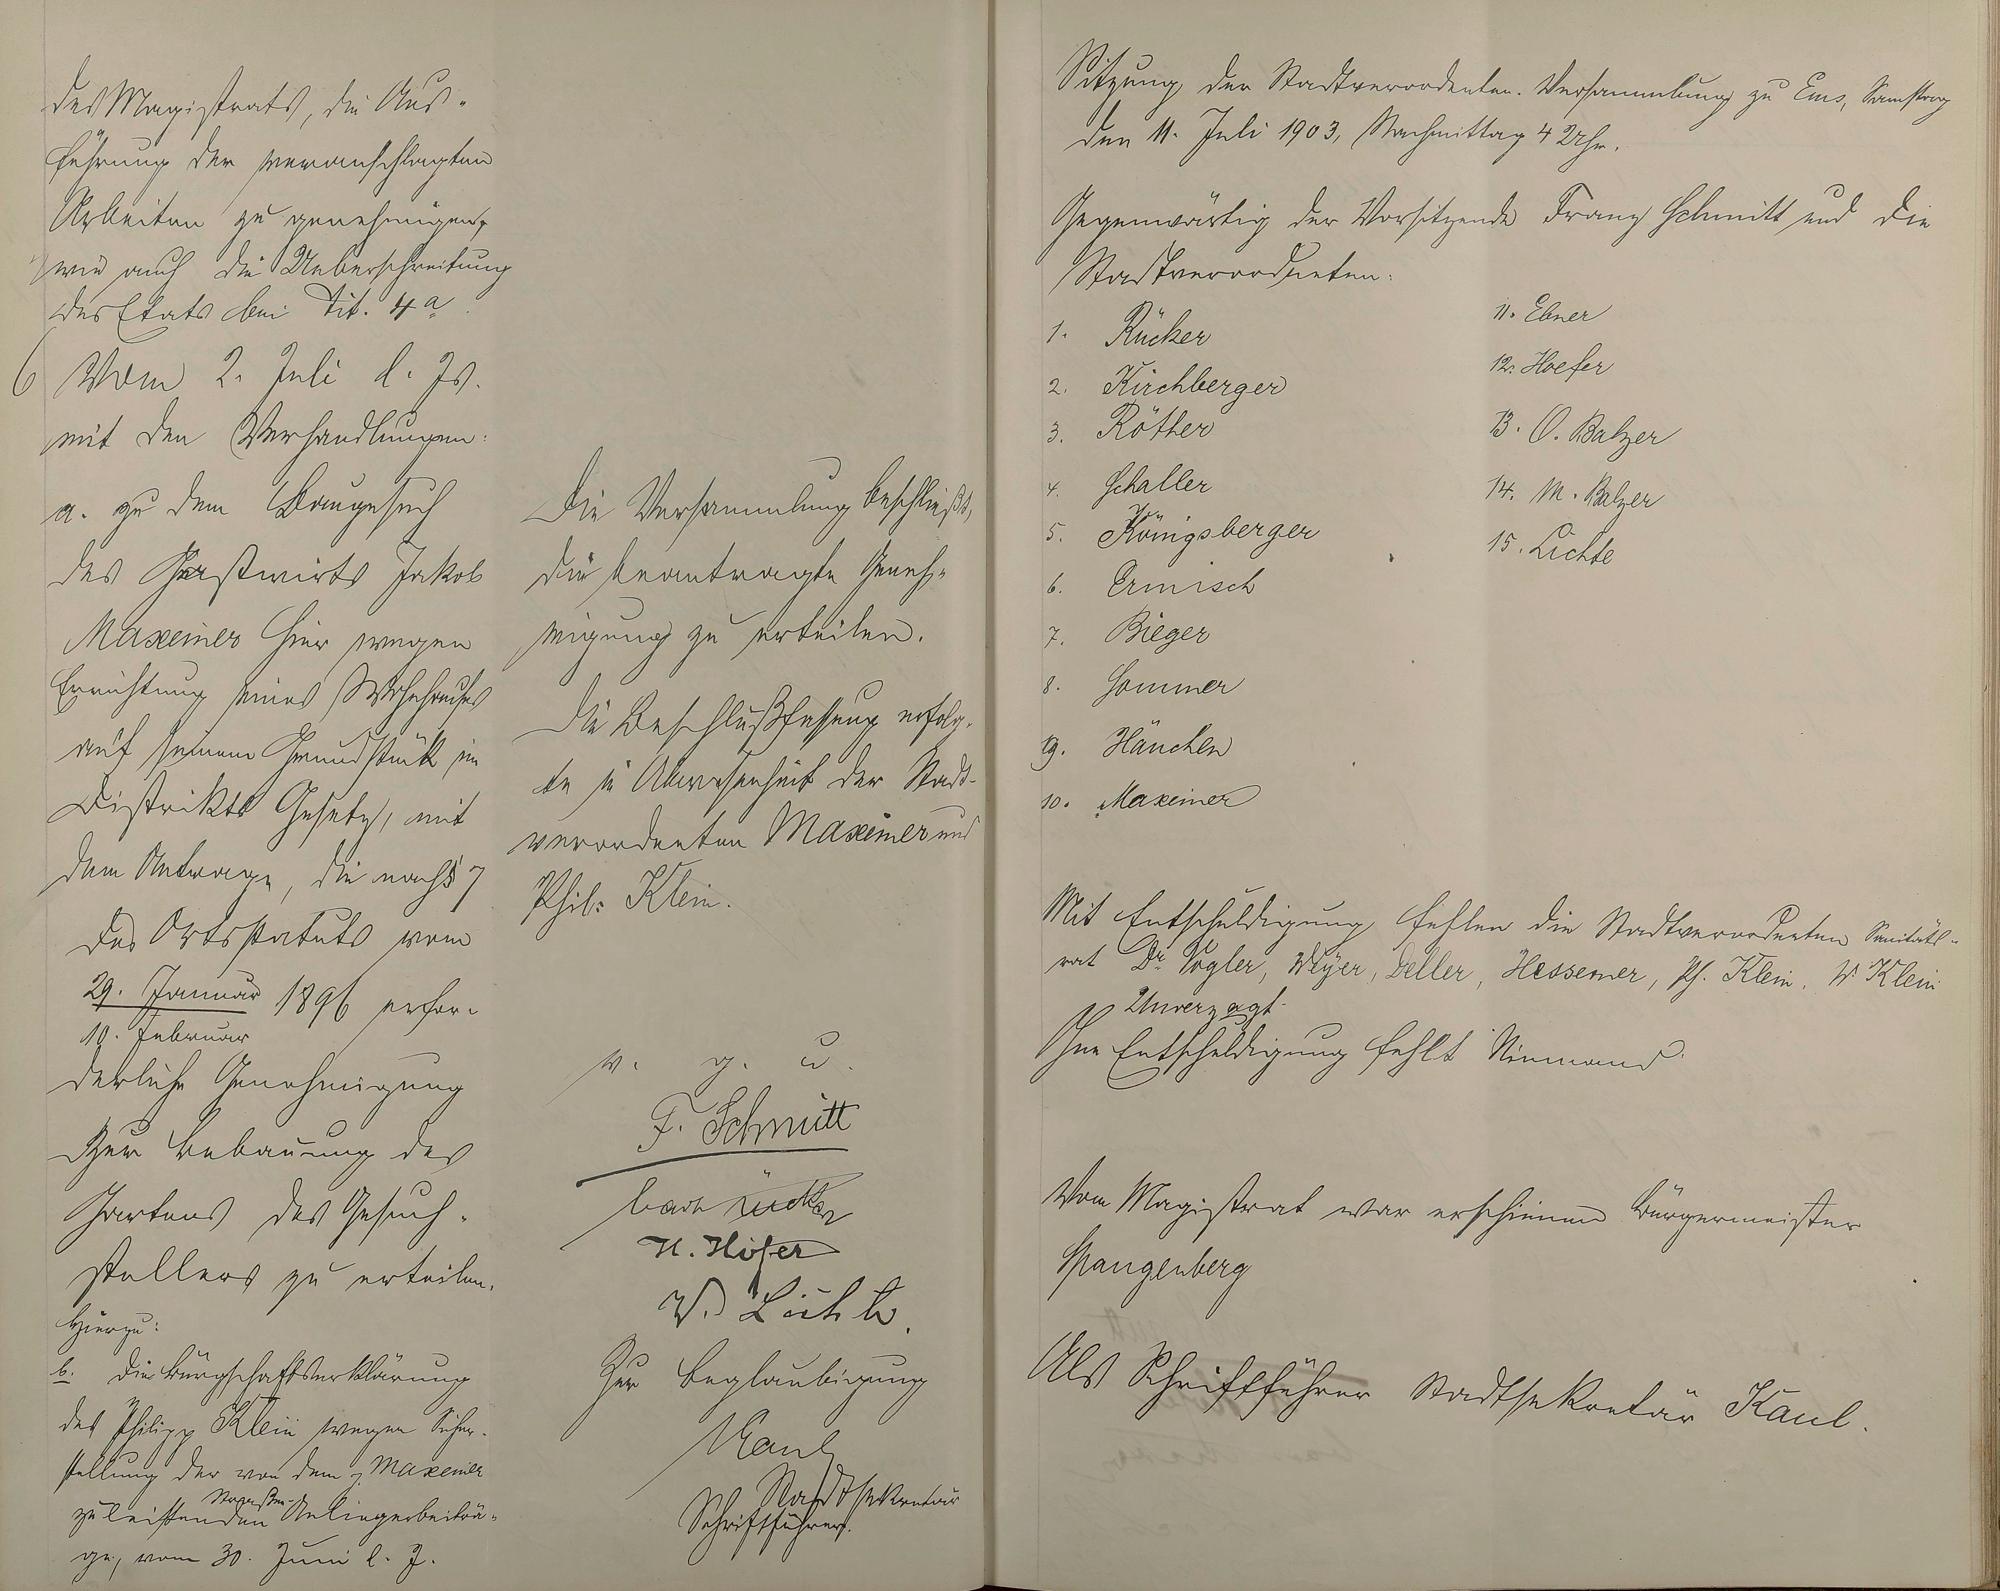 des Magistrats, die Aus-
führung der veranschlagten
Arbeiten zu genehmigen,
wie auch die Ueberschreitung
des Etats bei Tit. 4a.
6 Vom 2. Juli l. Js.
mit den Verhandlungen:
a. zu dem Baugesuch
des Gastwirts Jakob
Maxeiner hier wegen
Errichtung eines Wohnhauses
auf seinem Grundstück im
Distrikte Gesetz, mit
dem Antrage, die nach § 7
des Ortsstatuts vom
29. Januar
10. Februar
1896 erfor-
derliche Genehmigung
zur Bebauung des
Gartens des Gesuch-
stellers zu erteilen.
Hierzu:
b. die Bürgschaftserklärung
des Philipp Klein wegen Sicher-
stellung der von dem p. Maxeiner
zu leistenden Straßen-Anliegerbeiträ-
ge, vom 30. Juni l. J.
Die Versammlung beschließt,
die beantragte Geneh-
migung zu erteilen.
Die Beschlußfassung erfolg-
te in Abwesenheit der Stadt-
verordneten Maxeiner und
Phil. Klein.
v. g. u.
F. Schmitt
Rücker
H. Höfer
W. Lichte.
Zur Beglaubigung
Kaul
Stadtsekretär
Schriftführer.
Sitzung der Stadtverordneten-Versammlung zu Ems, Samstag
den 11. Juli 1903, Nachmittag 4 Uhr.
Gegenwärtig der Vorsitzende Franz Schmitt und die
Stadtverordneten:
1. Rücker
2. Kirchberger
3. Röther
4. Schaller
5. Königsberger
6. Ermisch
7. Bieger
8. Sommer
9. Hänchen
10. Maxeiner
11. Ebner
12. Hoefer
13. O. Balzer
14. M. Balzer
15. Lichte
Mit Entschuldigung fehlen die Stadtverordneten Sanitäts-
rat Dr. Vogler, Weyer, Deller, Hessemer, Ph. Klein, W. Klein
Unverzagt.
Ohne Entschuldigung fehlt Niemand.
Vom Magistrat war erschienen Bürgermeister
Spangenberg
Als Schriftführer Stadtsekretär Kaul.